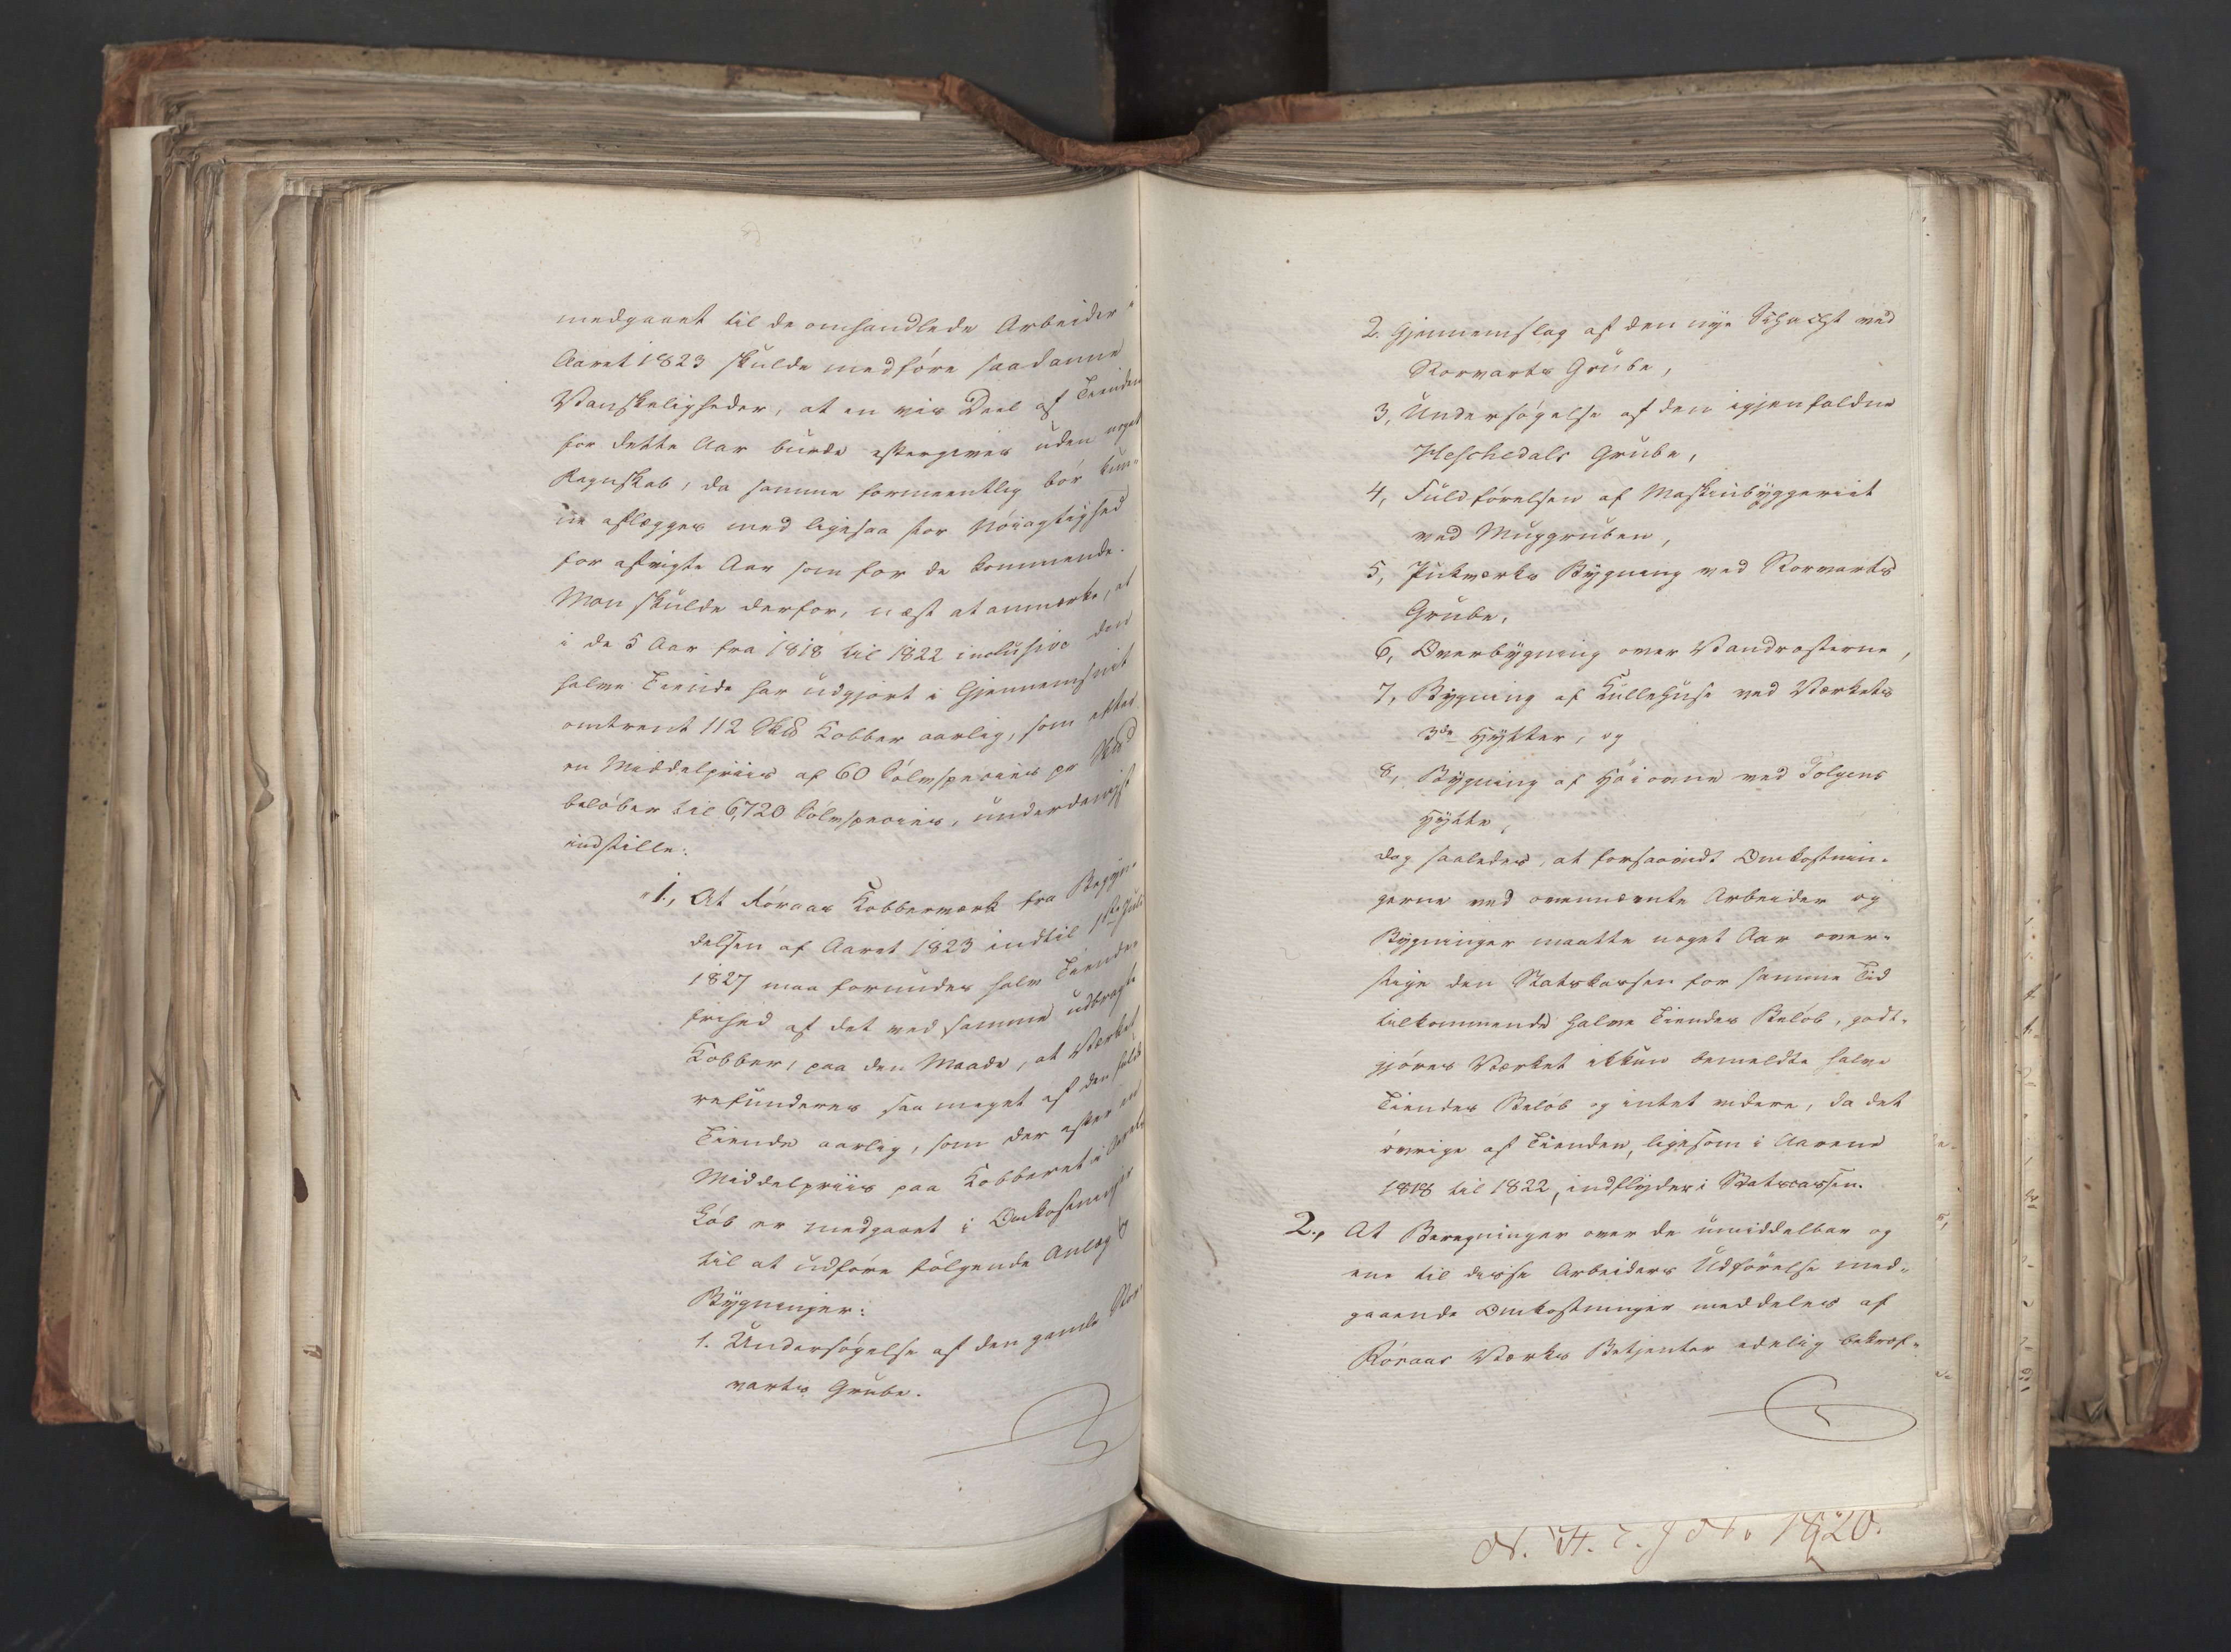 medgaaet til de omhandlede Arbeider i
Aaret 1823 skulde medføre saadanne
Vanskeligheder, at en vis Deel af Tienden
for dette Aar burde eftergives uden noget
Regnskab, da samme formeentlig bør kun-
ne aflægges med ligesaa stor Nøiagtighed
for afvigte Aar som for de kommende.
Man skulde derfor, næst at anmærke, at
i de 5 Aar fra 1818 til 1822 inclusive den
halve Tiende har udgjort i Gjennemsnit
omtrent 112 Sk℔ Kobber aarlig, som efter
en Middelpriis af 60 Sølvspecies pr Sk℔
beløber til 6,720 Sølvspecies, underdanigst
indstille:
"1., At Røraas Kobberværk fra Begyn-
delsen af Aaret 1823 indtil 1ste Juli
1827 maa forundes halv Tiende
frihed af det ved samme udbragte
Kobber, paa den Maade, at Værket
refunderes saa meget af den fulde
Tiende aarlig, som der efter en
Middelpriis paa Kobberet i Aarets
Løb er medgaaet i Omkostninger
til at udføre følgende Anlæg og
Bygninger:
1. Undersøgelse af den gamle Stor
varts Grube.
2. Gjennemslag af den nye Schacht ved
Storvarts Grube,
3, Undersøgelse af den igjenfaldne
Heschedals Grube,
4, Fuldførelsen af Maskinbyggeriet
ved Muggruben,
5, Pukværks Bygning ved Storvarts
Grube,
6, Overbygning over Vandrosterne,
7, Bygning af Kullehuse ved Værkets
3de Hytter, og
8, Bygning af Høiovne ved Tolgens
Hytte,
dog saaledes, at forsaavidt Omkostnin-
gerne ved ovennævnte Arbeider og
Bygninger maatte noget Aar over-
stige den Statskassen for samme Tid
tilkommende halve Tiendes Beløb, godt-
gjøres Værket ikkun bemeldte halve
Tiendes Beløb og intet videre, da det
øvrige af Tienden, ligesom i Aarene
1818 til 1822, indflyder i Statscassen.
2., At Beregninger over de umiddelbar og
ene til disse Arbeiders Udførelse med-
gaaende Omkostninger meddeles af
Røraas Værks Betjenter edelig bekræf-
1820.